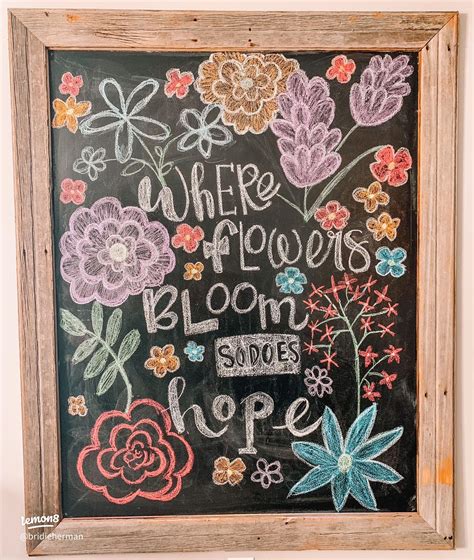 WHERE
flowers
BLOOM
SO DOES
hope
lemon8
@bridieherman